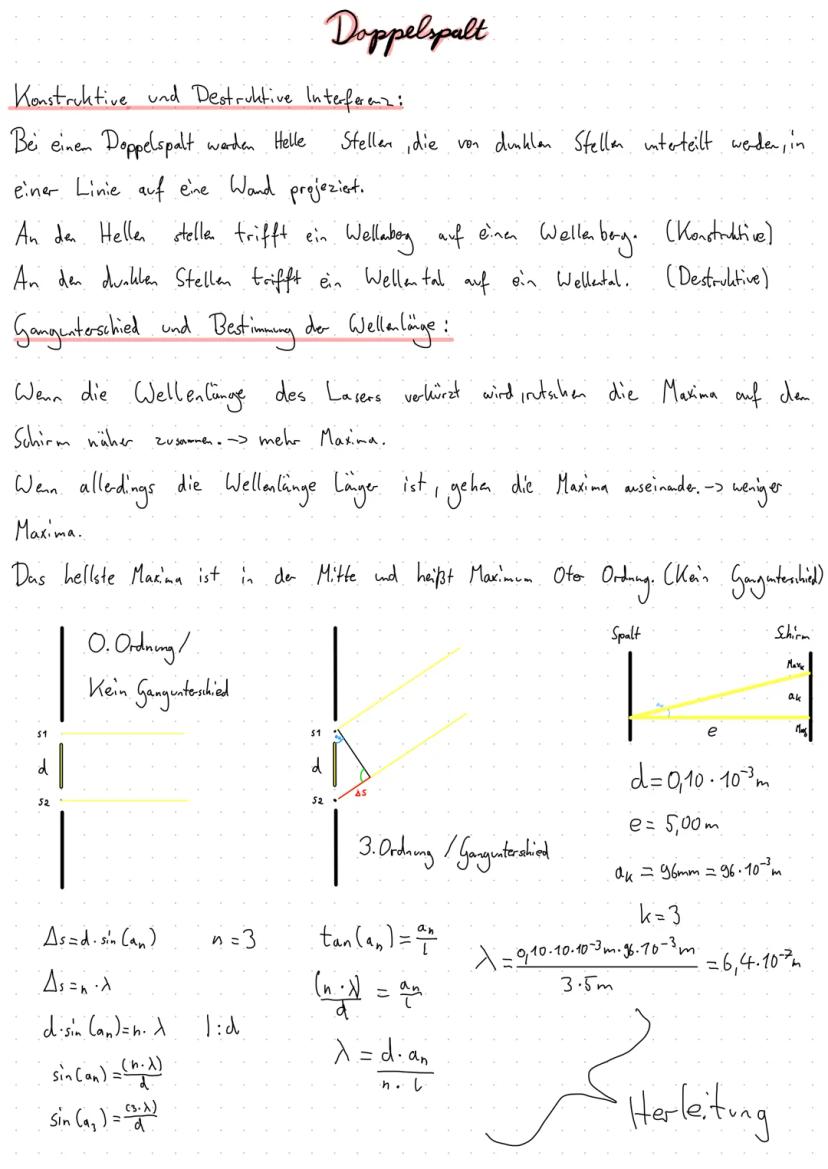 Doppelspalt
Konstruktive und Destruktive Interferenz:
Bei einem Doppelspalt werden Helle Stellen, die von dunklen Stellen unterteilt werden, in
einer Linie auf eine Wand projeziert.
An den Hellen stellen trifft ein Wellenberg auf einen Wellenberg. (Konstruktive)
An den dunklen Stellen trifft ein Wellental auf ein Wellental. (Destruktive)
Gangunterschied und Bestimmung der Wellenlänge:
Wenn die Wellenlänge des Lasers verkürzt wird, rutschen die Maxima auf dem
Schirm näher zusammen. -> mehr Maxima.
Wenn allerdings die Wellenlänge Länger ist, gehen die Maxima auseinander. -> weniger
Maxima.
Das hellste Maxima ist in der Mitte und heißt Maximum 0ter Ordnung. (Kein Gangunterschied)
0. Ordnung/
Kein Gangunterschied
S1
d
S2
S1
d
S2
Δs
3. Ordnung / Gangunterschied
Spalt Schirm
Max_k
a_k
e
Max_0
d = 0,10 · 10⁻³ m
e = 5,00 m
a_k = 96mm = 96 · 10⁻³ m
k = 3
Δs = d · sin(a_n) n = 3
Δs = n · λ
d · sin(a_n) = n · λ |:d
sin(a_n) = (n·λ)/d
sin(a_3) = (3·λ)/d
tan(a_n) = a_n/l
(n·λ)/d = a_n/l
λ = d · a_n / n · l
λ = 0,10·10·10⁻³ m · 96·10⁻³ m / 3·5m = 6,4·10⁻⁷ m
Herleitung